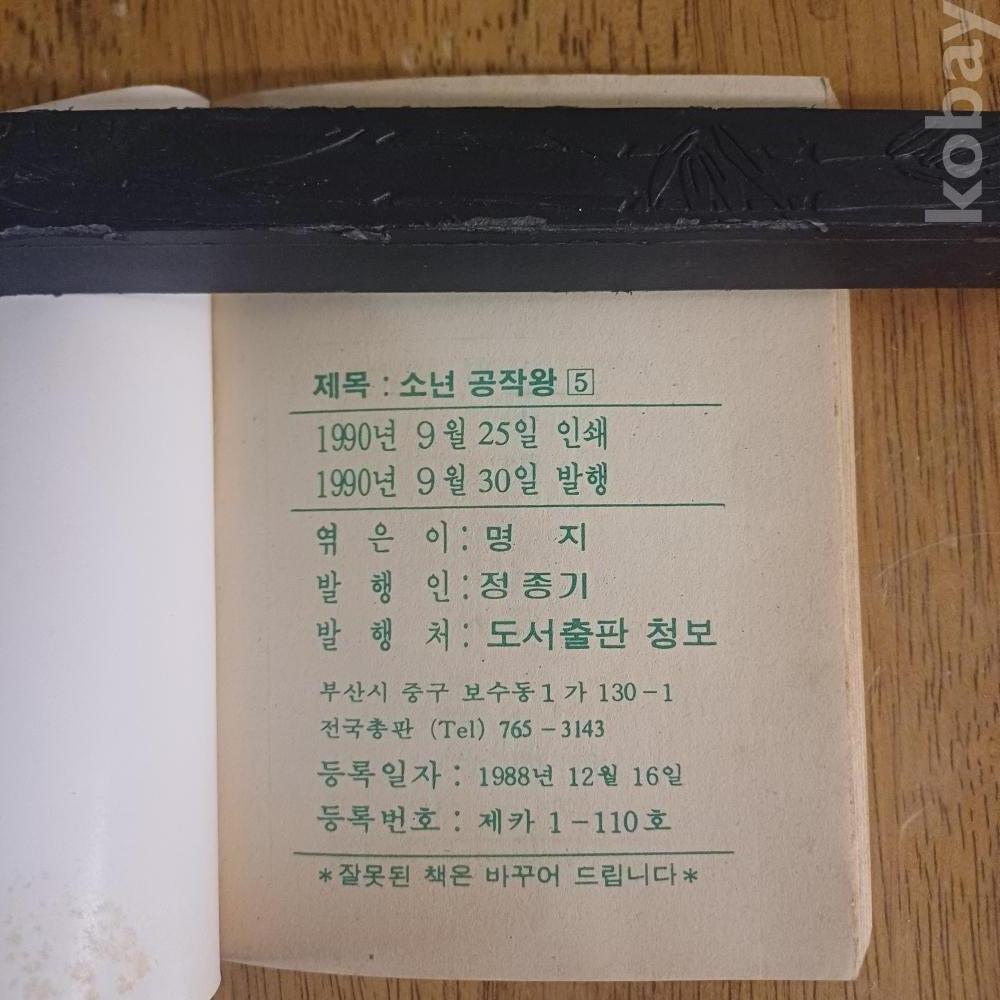 kobay
제목 : 소년 공작왕 5
1990년 9월 25일 인쇄
1990년 9월 30일 발행
엮은이 : 명 지
발행인 : 정종기
발행처 : 도서출판 청보
부산시 중구 보수동1가 130-1
전국총판 (Tel) 765-3143
등록일자 : 1988년 12월 16일
등록번호 : 제카 1-110호
*잘못된 책은 바꾸어 드립니다*